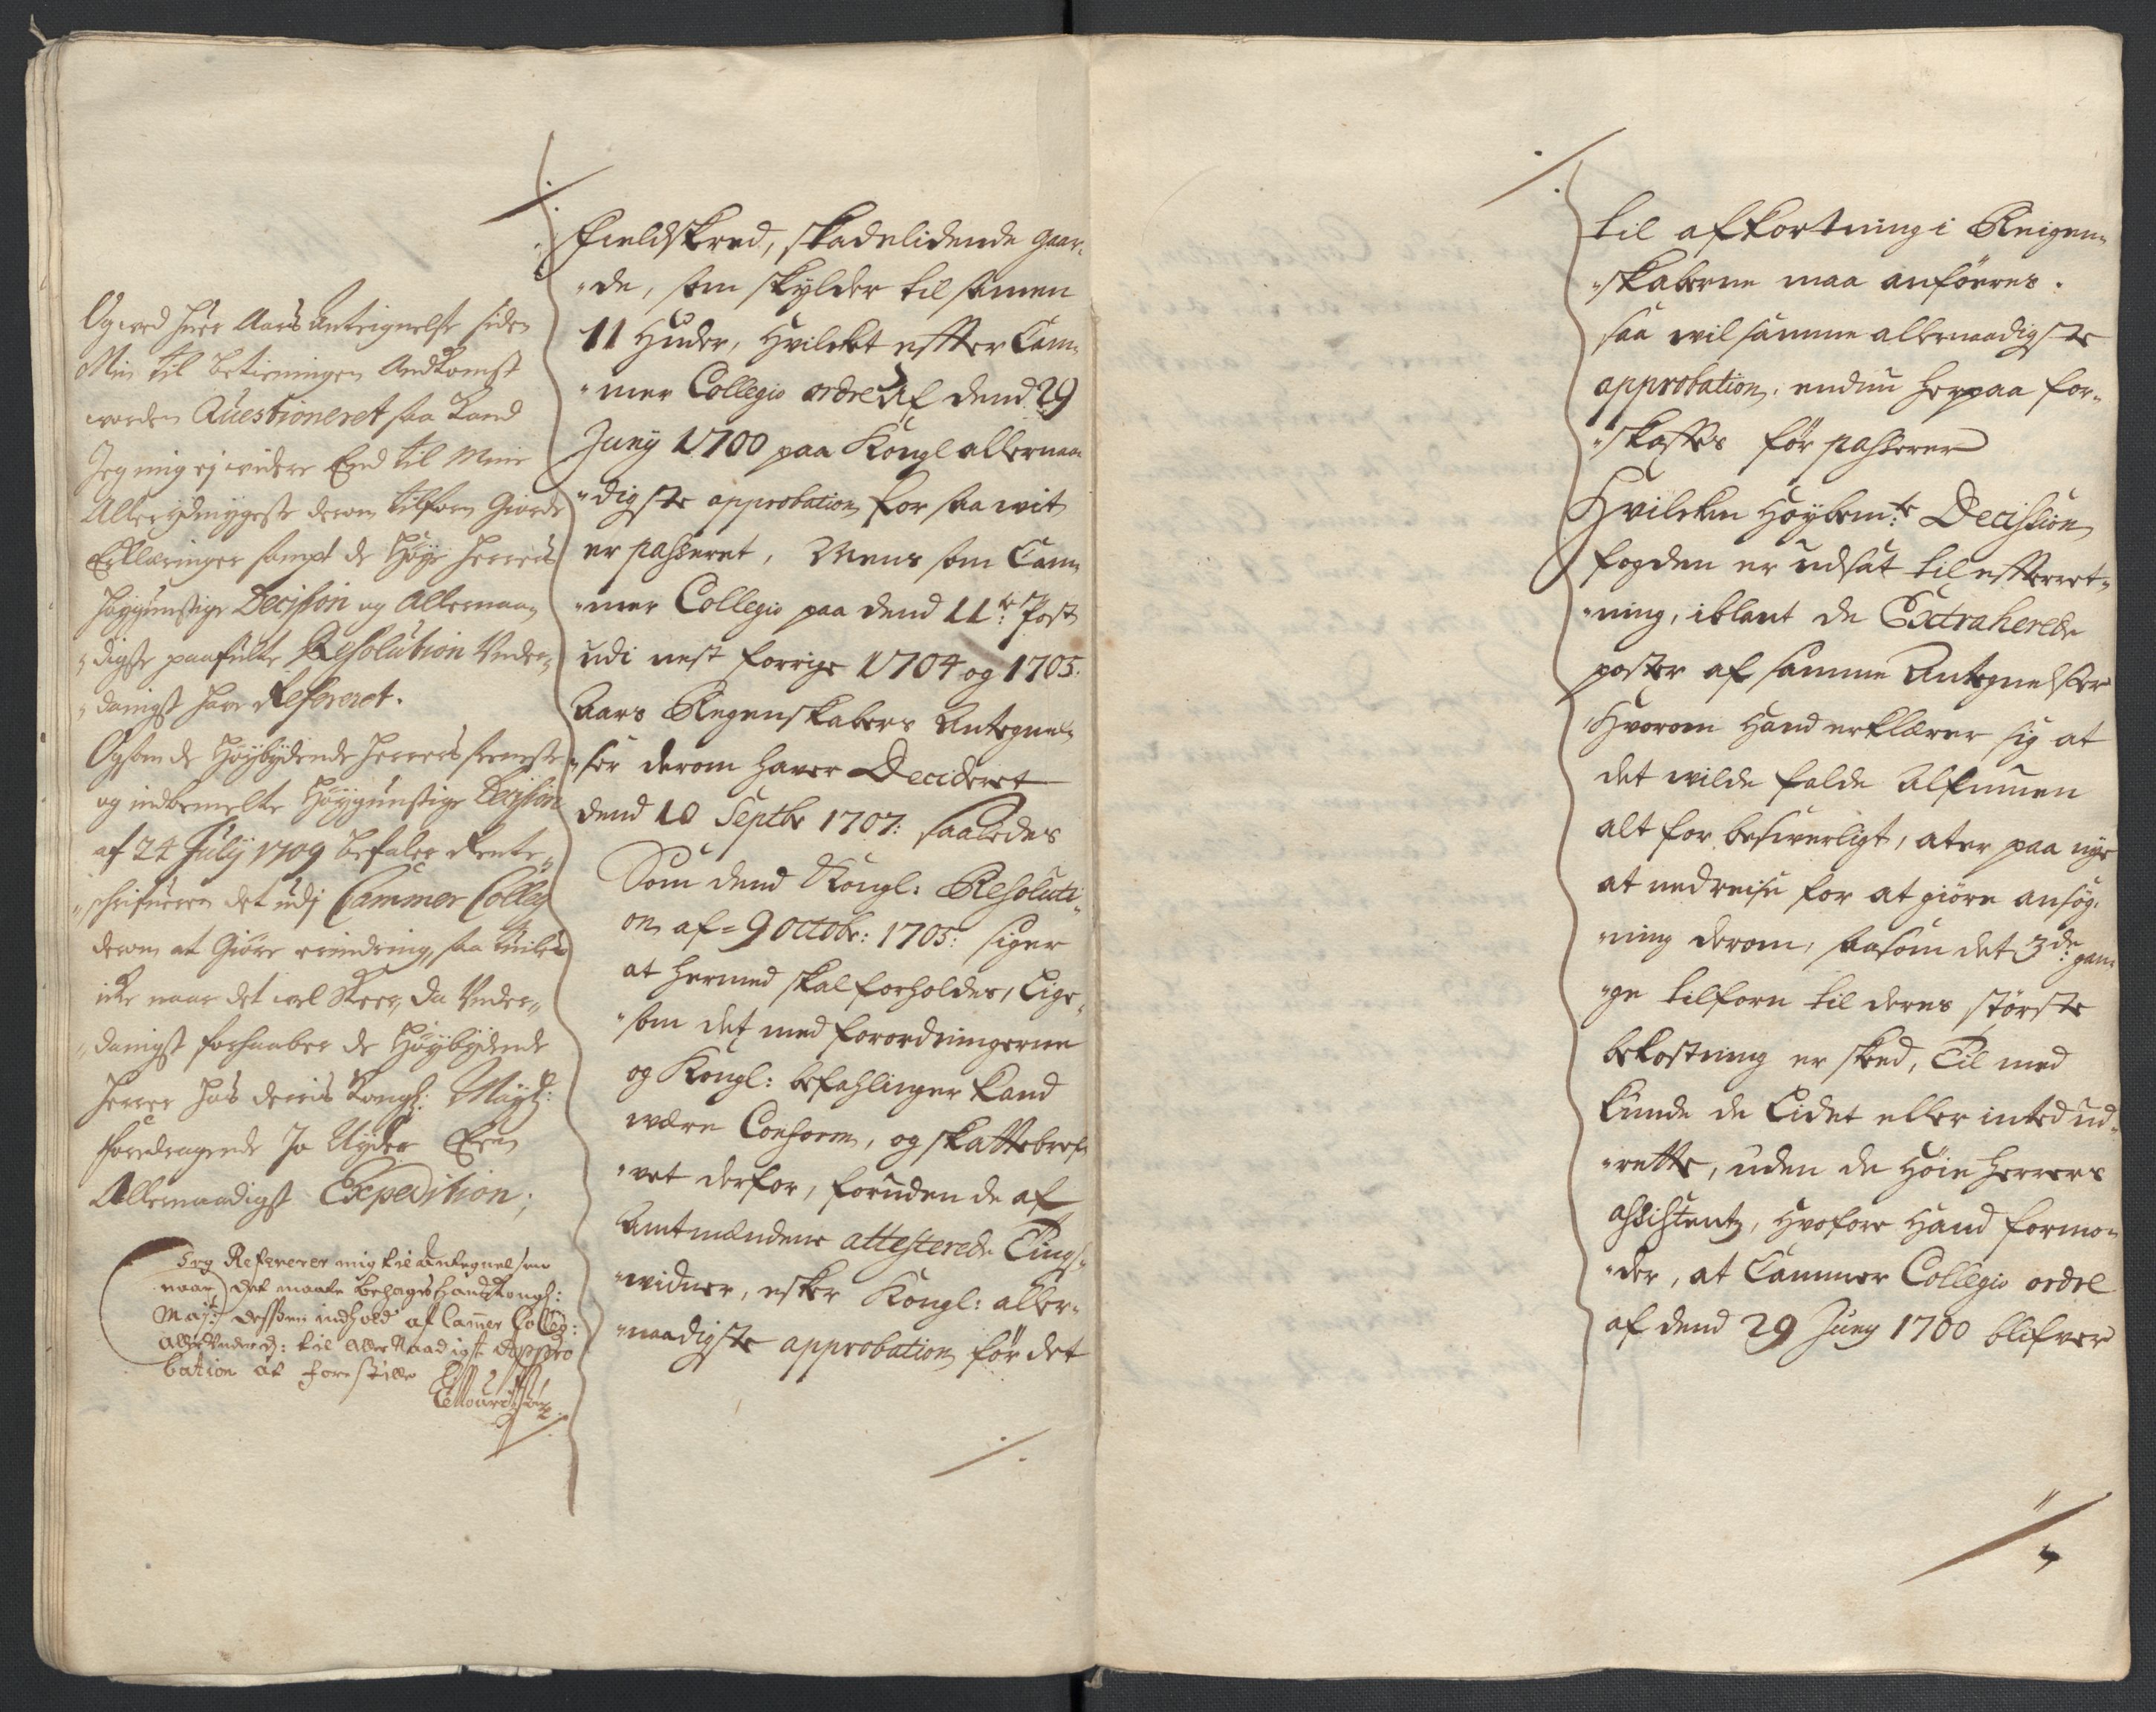 Og ved hver Aars Anteignelse siden
Min til betieningen Andkomst
worden Questioneret saa kand
Jeg mig ej widere End til Mine
Allerydmygeste derom tilforn Giorde
Erklæringer sampt de Høye Herrers
høygunstige Decision og Allernaa-
digste paafulte Resolution Under-
danigst her Refereret.
Og som de Høybydende Herrers seeneste
og indbemelte Høygunstige Decision
af 24 July 1709 befaler Rente-
schrifueren det udj Cammer Colleg
derom at Giøre erindring, saa
icke naar det vel skeer, da Under-
danigst forhaaber de Høybydende
Herrer hos deris Kongl: Mayt:
foredragende Jo Nyder Een
Allernaadigst Expedition;
Jeg Refererer mig til Antegnelsen
naar det maate behage Hans Kongl:
Majt: dessen indhold af Cammer Colleg:
allerunderd: til aller Naadigste Appro
bation at forestille
Fieldskred, skadelidende gaar-
de, som skylder tilsamen
11 Huder, hvilcket effter Cam-
mer Collegio ordre af dend 29
Juny 1700 paa Kongl allernaa-
digste approbation for saa vit
er passeret, Mens som Cam-
mer Collegio paa dend 11te Post
udi nest forrige 1704 og 1705.
Aars Regenskabers Antegnel-
ser derom haver Decideret
dend 10 Septbr 1707: saaledes
Som dend Kongl: Resoluti-
on af 9 octobr: 1705: siger
at hermed skal forholdes, Lige-
som det med forordningerne
og Kongl: befahlinger kand
være Conform, og skattebref-
vet derfor, foruden de af
Amtmændene attesterede Tings-
vidner, esker Kongl: aller-
naadigste approbation før det
til afkortning i Reigen-
skaberne maa anføeres.
saa vil samme allernaadigste
approbation endnu herpaa for-
skaffes før passerer
Hvilcken Høybemte Decission
fogden er udsat til effterret-
ning, iblant de Extraherede
poster af samme Antegnelser
Hvorom Hand erklærer sig at
det vilde falde Almuen
alt for besverligt, ater paa nye
at nedreise for at giøre ansøg-
ning derom, saasom det 3de gan-
ge tilforn til deres største
bekostning er skeed, Til med
kunde de Lidet eller intet ud-
rette, uden de Høie Herrers
assistentz, Hvorfore Hand formo-
der, at Cammer Collegio ordre
af dend 29 Juny 1700 blifver